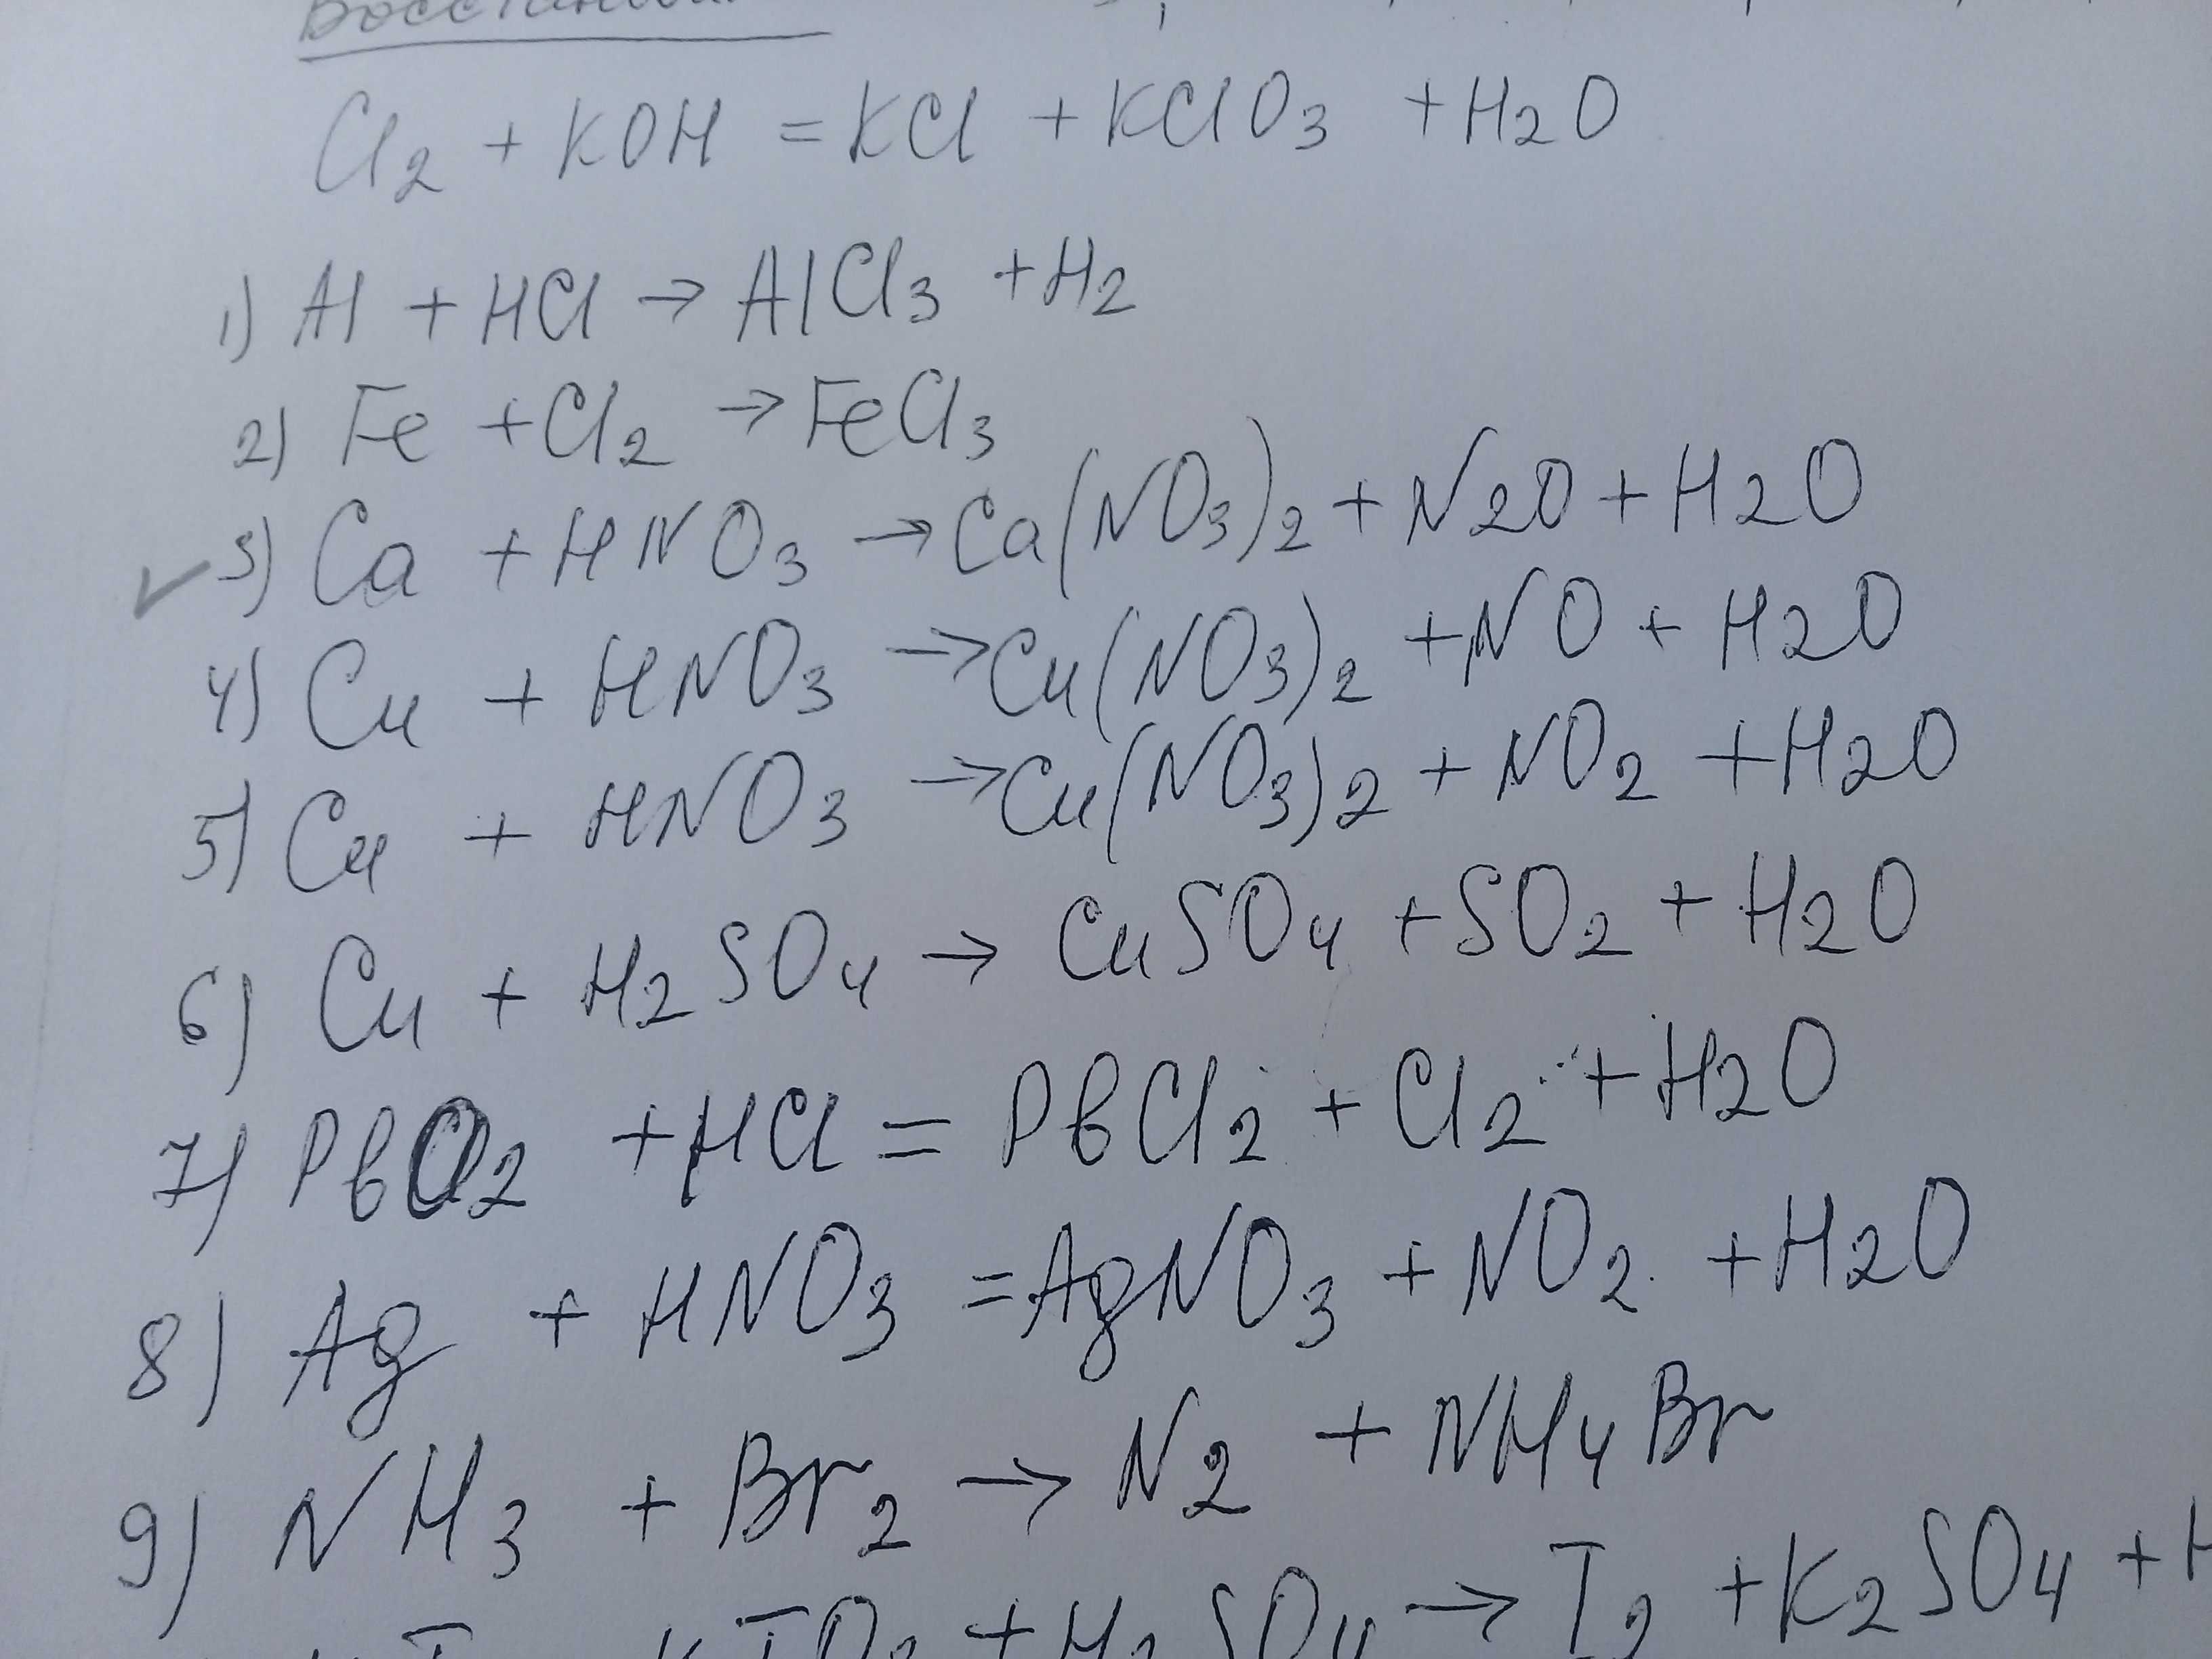 Cl2 + KOH = KCl + KClO3 + H2O
1) Al + HCl → AlCl3 + H2
2) Fe + Cl2 → FeCl3
✓ 3) Ca + HNO3 → Ca(NO3)2 + N2O + H2O
4) Cu + HNO3 → Cu(NO3)2 + NO + H2O
5) Cu + HNO3 → Cu(NO3)2 + NO2 + H2O
6) Cu + H2SO4 → CuSO4 + SO2 + H2O
7) PbO2 + HCl = PbCl2 + Cl2 + H2O
8) Ag + HNO3 = AgNO3 + NO2 + H2O
9) NH3 + Br2 → N2 + NH4Br
KIO3 + H2SO4 → I2 + K2SO4 +